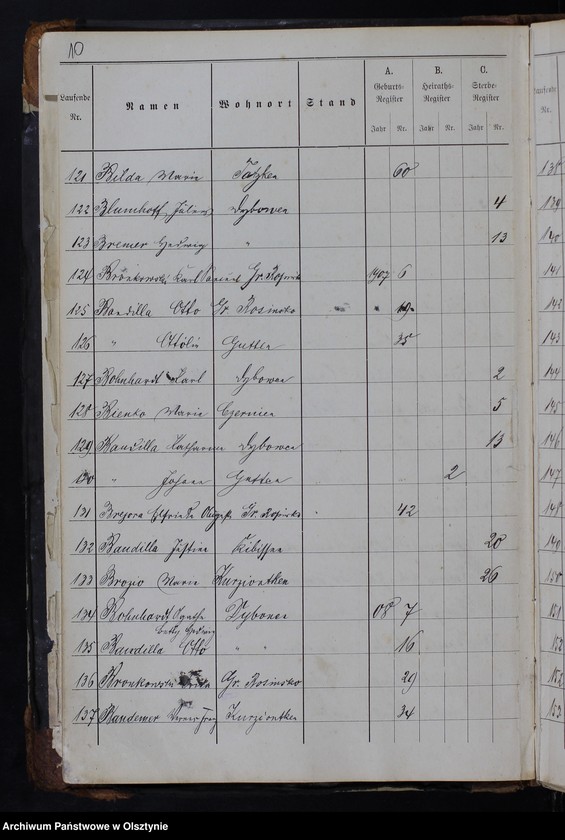 10
Laufende Nr. Namen Wohnort Stand A. Geburts-Register Jahr Nr. B. Heiraths-Register Jahr Nr. C. Sterbe-Register Jahr Nr.
121 Bilda Marie 60
122 Blumhoff, Julius Dybowen 4
123 Bremer Hedwig " 13
124 Bronkowski Karl Gr. Rosinsko 1907 6
125 Bandilla Otto Gr. Rosinsko " 19
126 " Ottilie Gutten 35
127 Bohnhardt Karl Dybowen 2
128 Bienko Marie Czernien 5
129 Bandilla Katharine Dybowen 13
130 " Johann Gutten 2
131 Gr. Rosinsko 42
132 Bandilla Justine Kibissen 20
133 Brozio Marie Kurziontken 26
134 Bohnhardt Agathe Dybowen 08 7
Betty Hedwig
135 Bandilla Otto " " 16
136 Bronkowski Gr. Rosinsko 29
137 Bandemer Kurziontken 34
Laufende Nr.
138
139
140
141
142
143
144
145
146
147
148
149
150
151
152
153
Archiwum Państwowe w Olsztynie